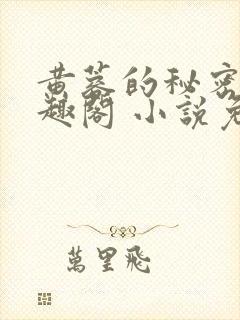 黄蓉的秘密
趣閣 小說免
萬里飛